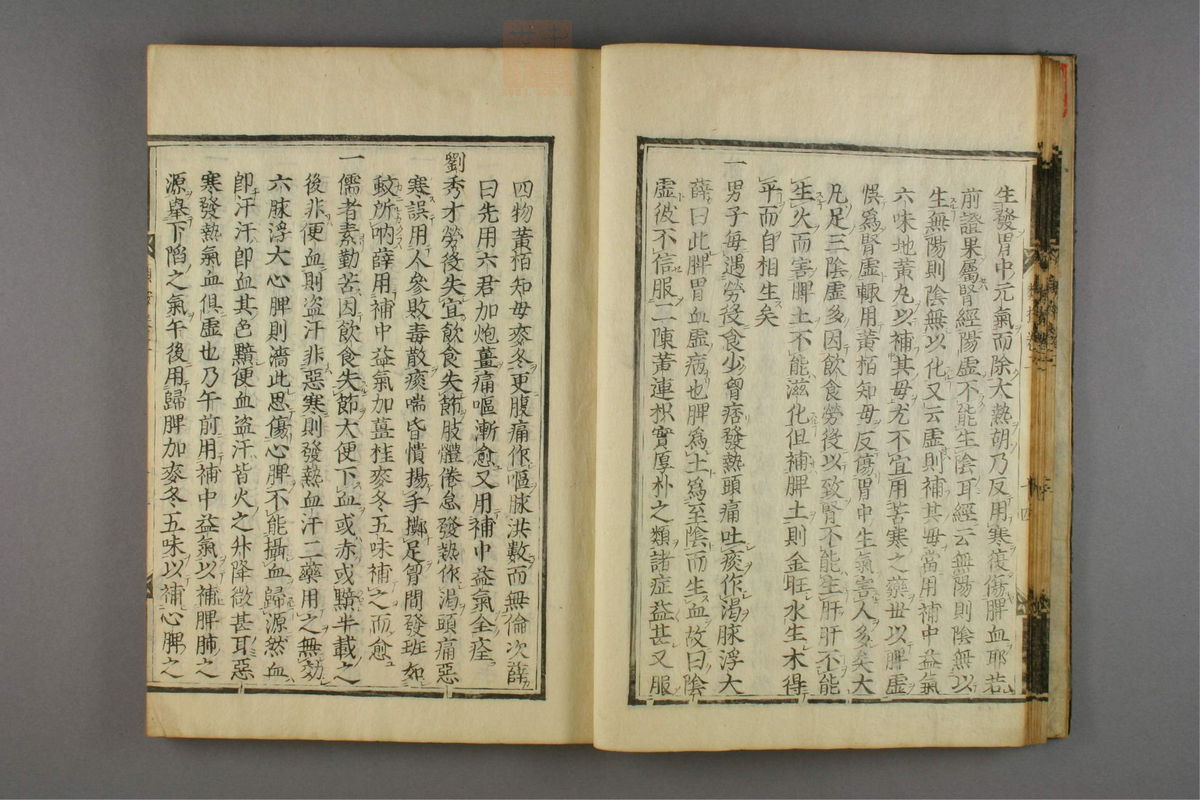 生發胃中元氣而除大熱胡乃反用寒復傷脾血耶若
前證果屬腎經陽虛不能生陰耳經云無陽則陰無以
生無陽則陰無以化又云虛則補其母當用補中益氣
六味地黃丸以補其母尤不宜用苦寒之藥世以脾虛
悞爲腎虛輙用黃栢知母反傷胃中生氣害人多矣大
凡足三陰虛多因飲食勞役以致腎不能生肝肝不能
生火而害脾土不能滋化但補脾土則金旺水生木得
平而自相生矣
一男子每遇勞役食少胷痞發熱頭痛吐痰作渴脉浮大
薛曰此脾胃血虛病也脾爲土爲至陰而生血故曰陰
虛彼不信服二陳黃連枳實厚朴之類諸症益甚又服
四物黃栢知母麥冬更腹痛作嘔脉洪數而無倫次薛
曰先用六君加炮薑痛嘔漸愈又用補中益氣全痊
劉秀才勞後失宜飲食失節肢體倦怠發熱作渴頭痛惡
寒誤用人參敗毒散痰喘昏憒揚手擲足胷間發班如
蚊所吶薛用補中益氣加薑桂麥冬五味補之而愈
一儒者素勤苦因飲食失節大便下血或赤或黯半載之
後非便血則盜汗非惡寒則發熱血汗二藥用之無効
六脉浮大心脾則濇此思傷心脾不能攝血歸源然血
卽汗汗卽血其色黯便血盜汗皆火之升降微甚耳惡
寒發熱氣血俱虛也乃午前用補中益氣以補脾肺之
源舉下陷之氣午後用歸脾加麥冬五味以補心脾之